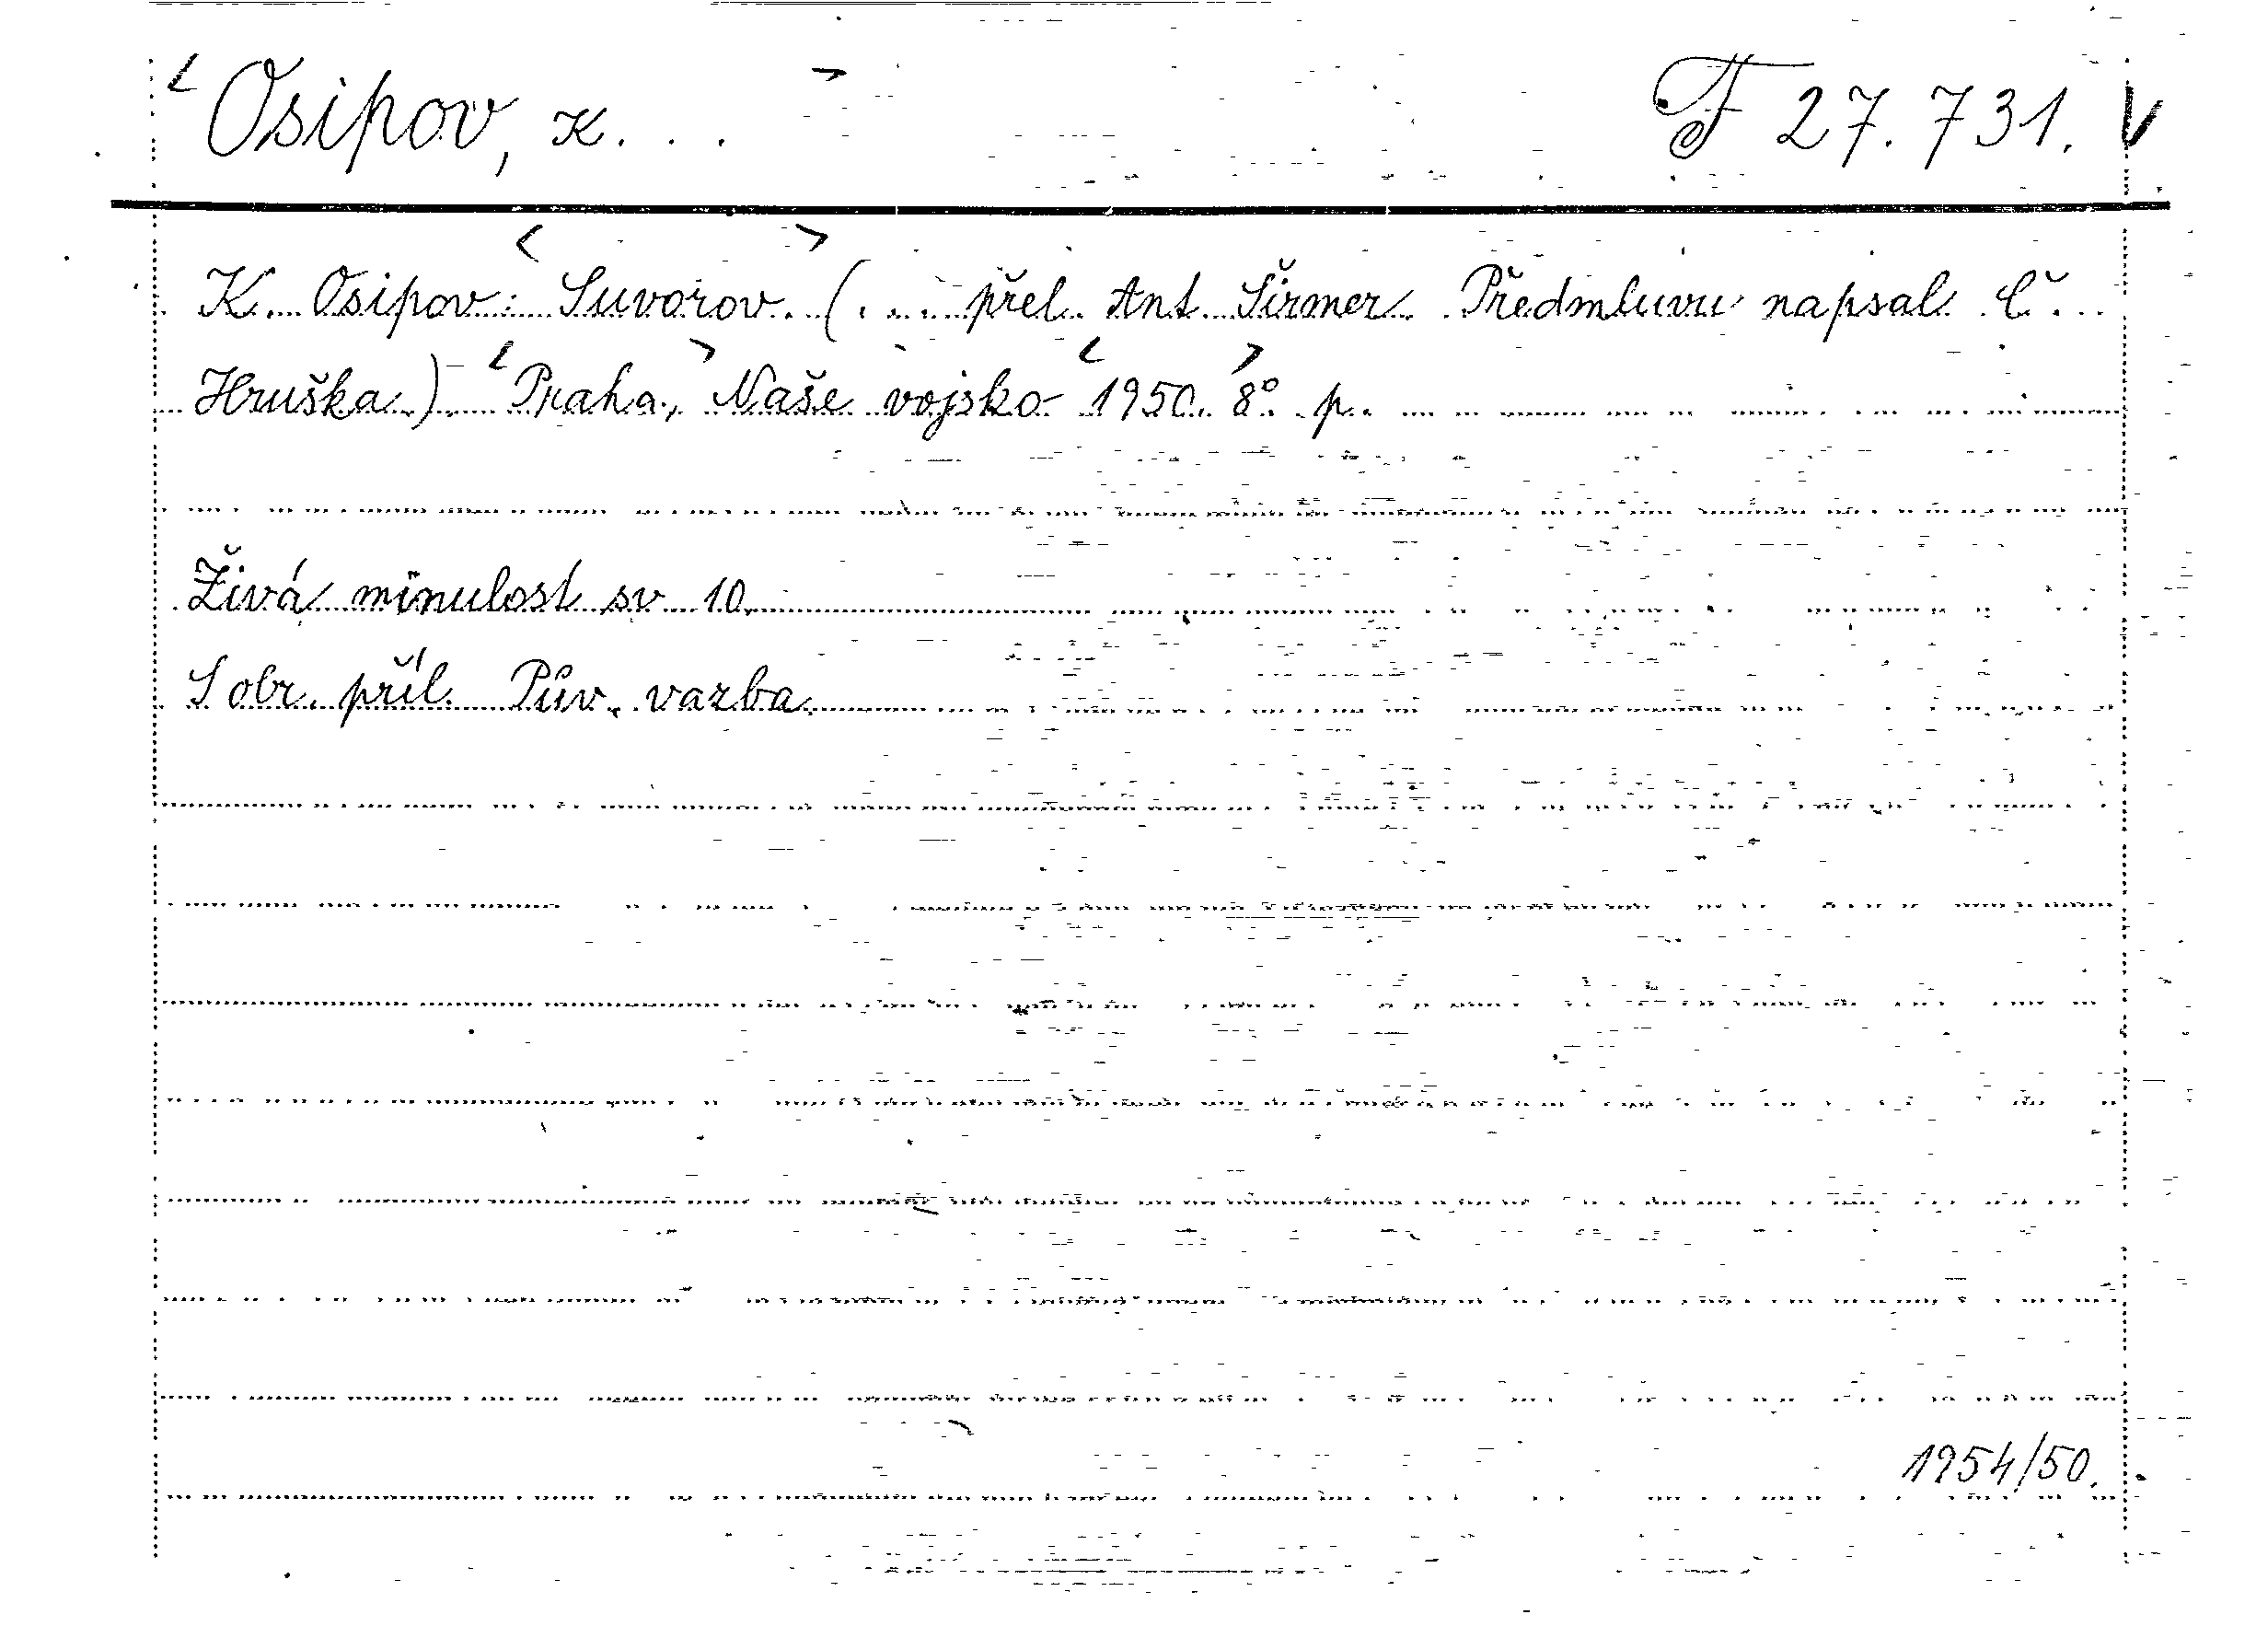 <Osipov, K. . . > F 27.731. V
K. Osipov: <Suvorov.> (. . . přel. Ant. Širmer. Předmluvu napsal Č. .
Hruška.) - <Praha,> Naše vojsko <1950.> 8°. p.
Živá minulost sv 10.
S obr. příl. Pův. vazba.
1954/50.